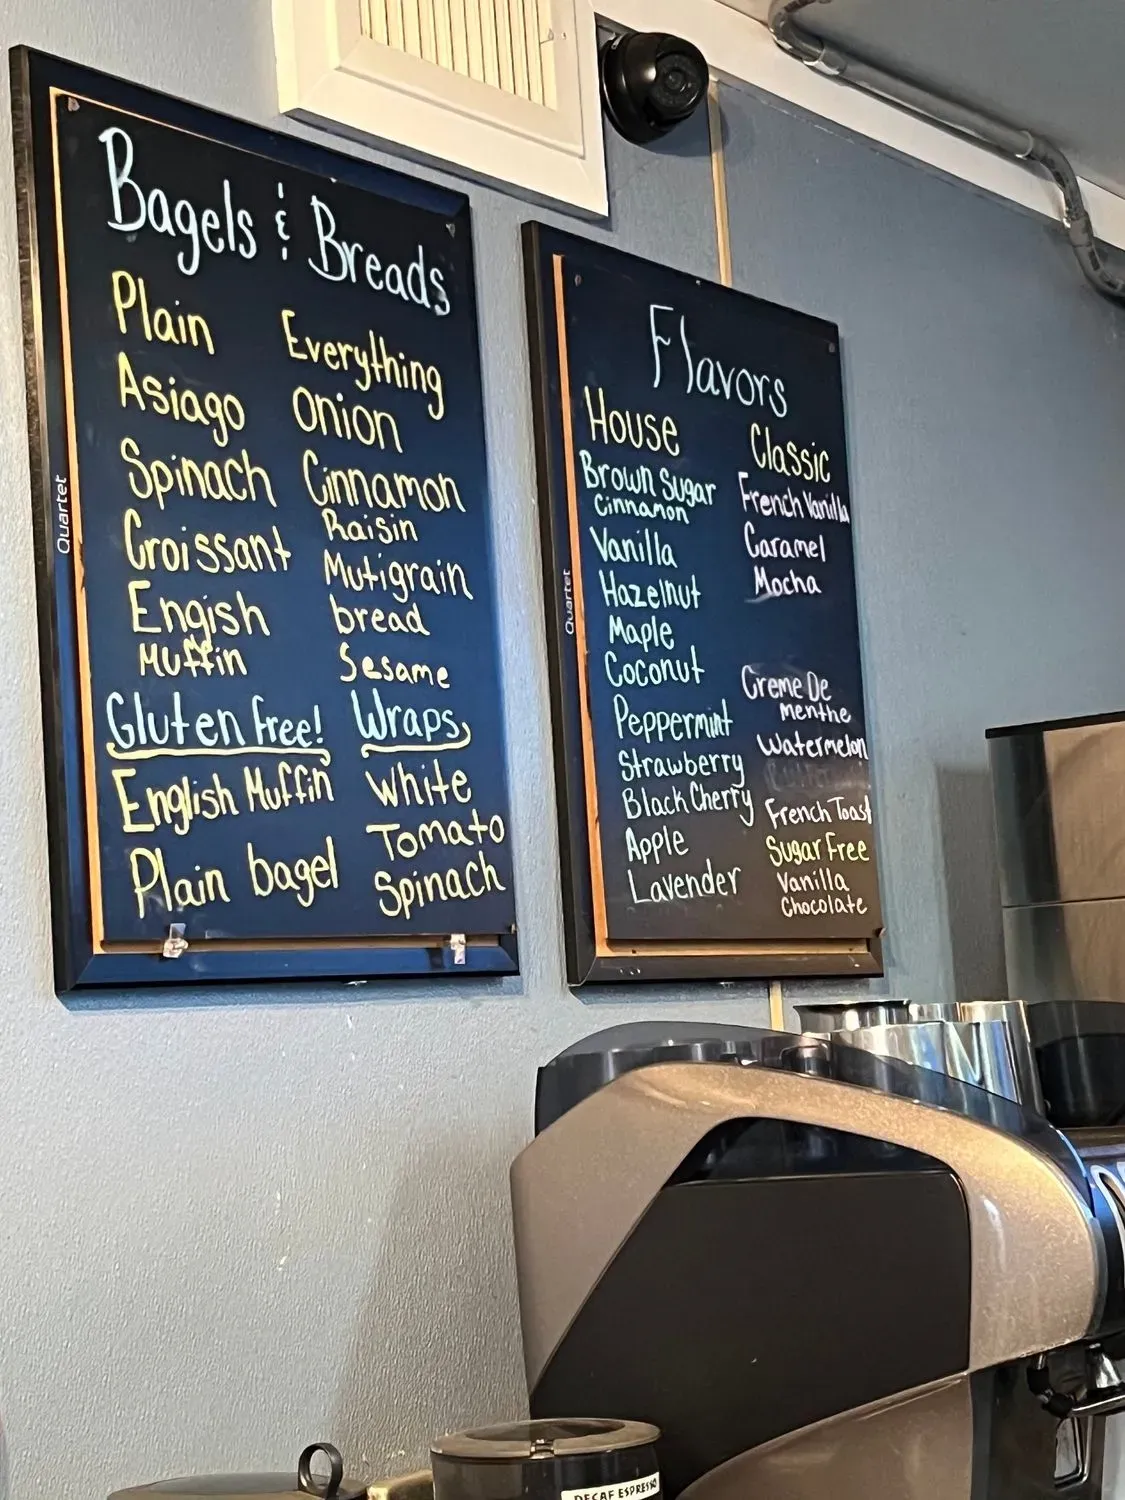 Bagels & Breads
Plain
Asiago
Spinach
Croissant
Engish
Muffin
Everything
Onion
Cinnamon
Raisin
Mutigrain
bread
Sesame
Gluten free!
English Muffin
Plain bagel
Wraps
White
Tomato
Spinach
Quartet
Flavors
House
Brown Sugar
Cinnamon
Vanilla
Hazelnut
Maple
Coconut
Peppermint
Strawberry
Black Cherry
Apple
Lavender
Classic
French Vanilla
Caramel
Mocha
Creme De
Menthe
Watermelon
French Toast
Sugar Free
Vanilla
Chocolate
Quartet
DECAF ESPRESSO